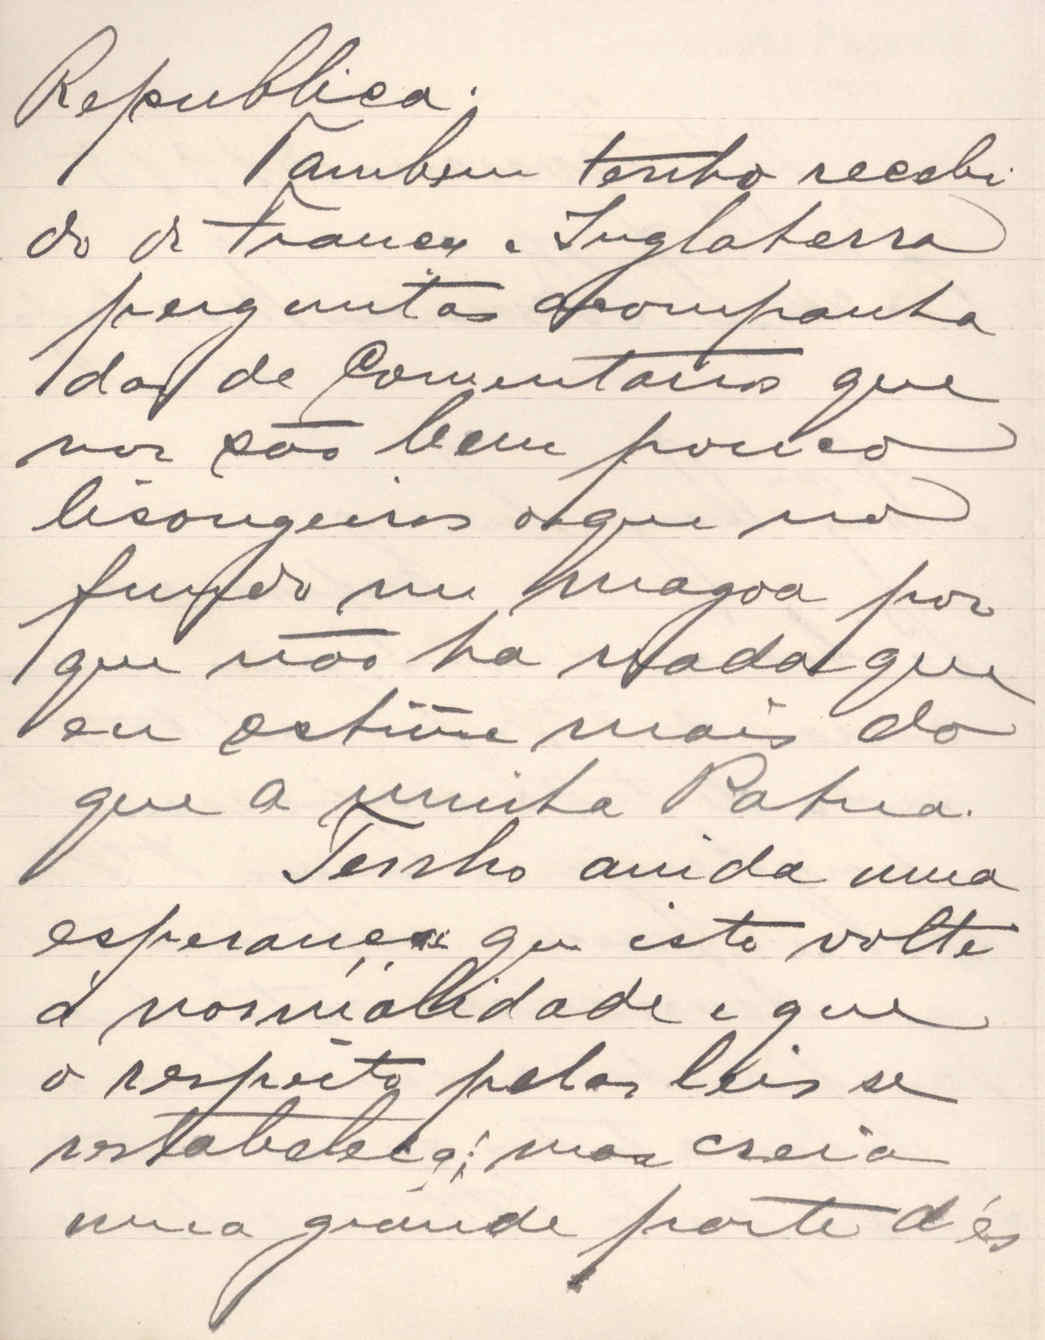 Republica.
Tambem tenho recebi
do de França e Inglaterra
perguntas acompanha
das de Comentarios que
nos são bem pouco
lisongeiros o que no
fundo me magoa por
que não ha nada que
eu estime mais do
que a minha Patria.
Tenho ainda uma
esperança que isto volte
á normalidade e que
o respeito pelas leis se
restabeleça; mas creia
uma grande parte d'és